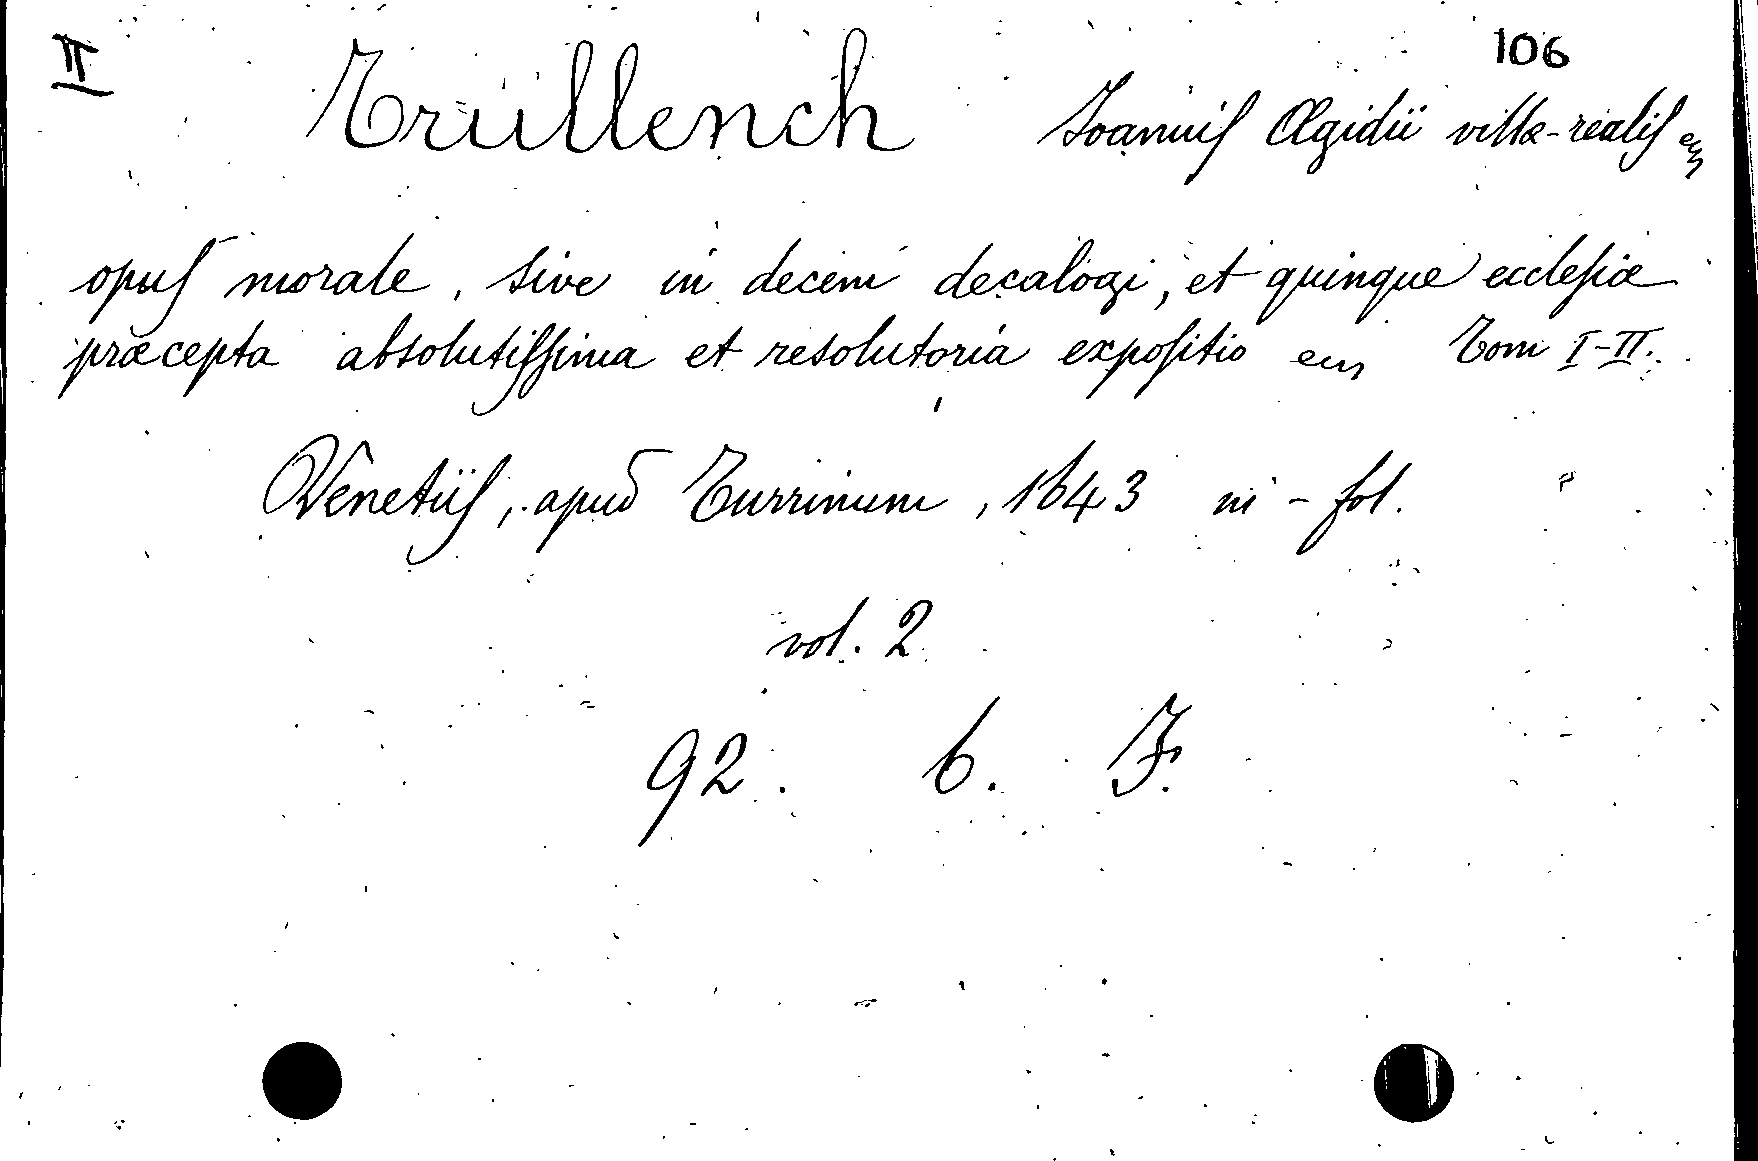 II 106
Trullench Joannis Ægidii villæ-realis
opus morale, sive in decem decalogi, et quinque ecclesiæ
præcepta absolutissima et resolutoria expositio Tom I-II.
Venetiis, apud Turrinum, 1643 in-fol.
vol. 2
92. b. F.